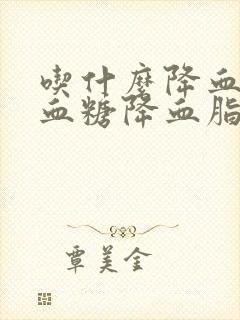 喫什麼降血
血糖降血脂
覃美金